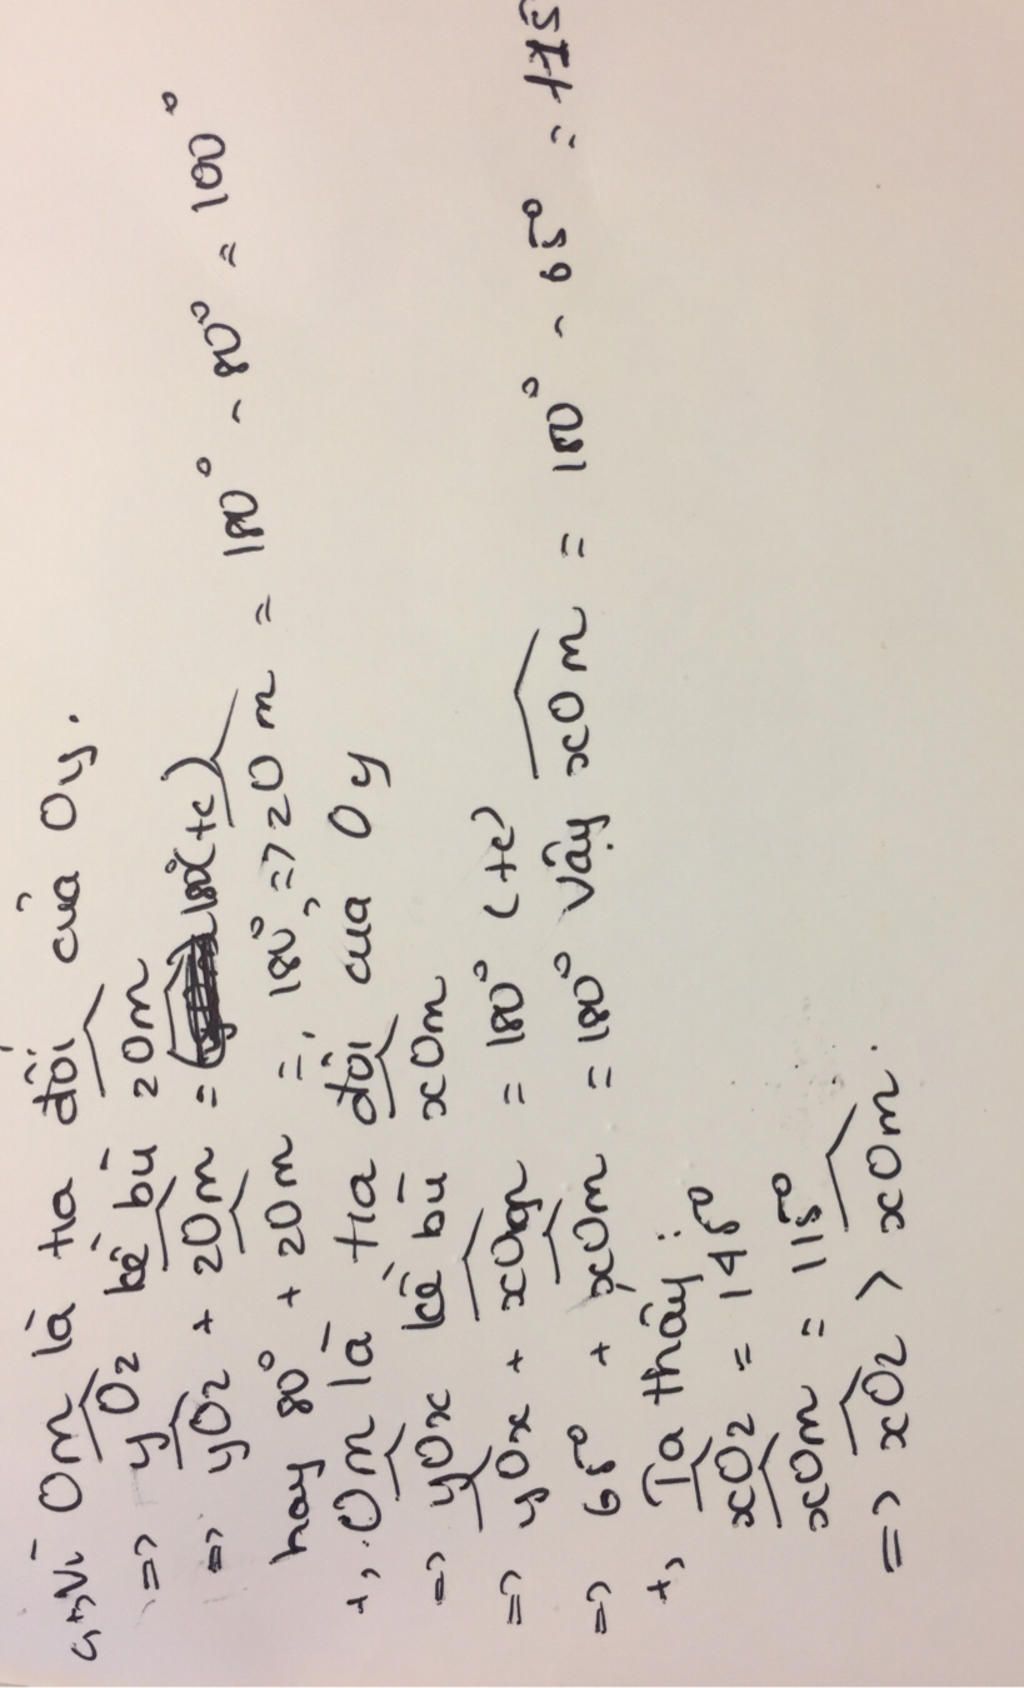 c, +, Vì Om là tia đối của Oy.
=> yOz kề bù zOm
=> yOz + zOm = 180° (t/c)
hay 80° + zOm = 180°, => zOm = 180° - 80° = 100°
+, Om là tia đối của Oy
=> yOx kề bù xOm
=> yOx + xOm = 180° (t/c)
=> 65° + xOm = 180° Vậy xOm = 180° - 65° = 115
+, Ta thấy:
xOz = 145°
xOm = 115°
=> xOz > xOm.